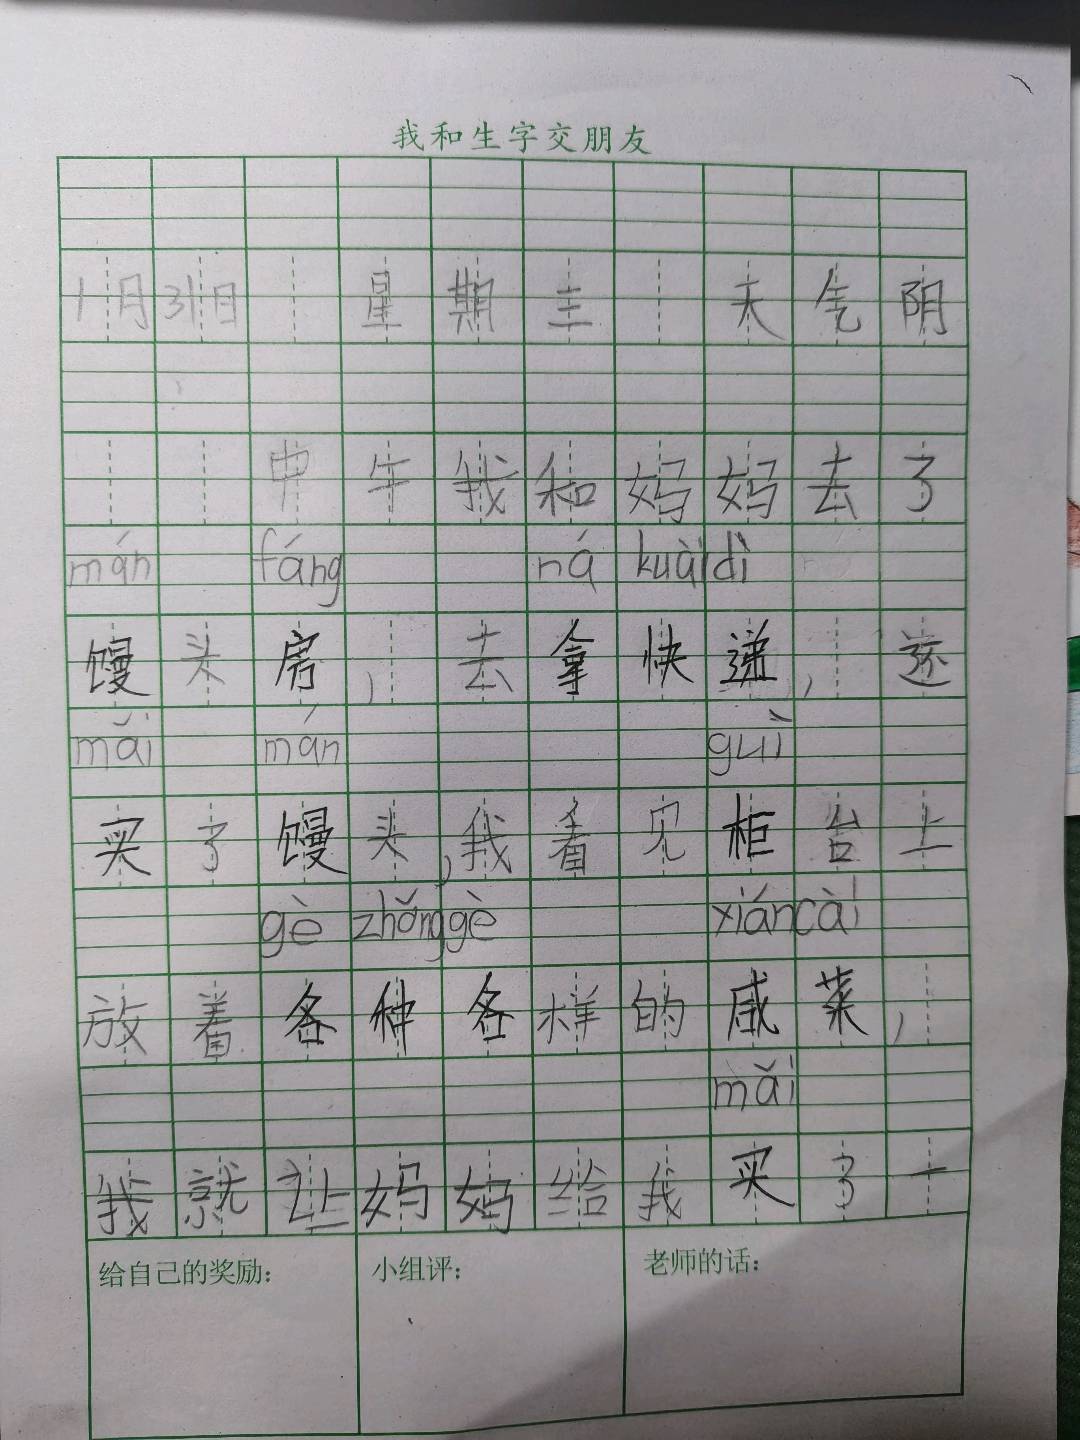 我和生字交朋友
1月31日 星期三 天气阴
中午我和妈妈去了
mán fáng ná kuài dì
馒头房，去拿快递，还
mǎi mán guì
买了馒头，我看见柜台上
gè zhǒng gè xián cài
放着各种各样的咸菜，
mǎi
我就让妈妈给我买了一
给自己的奖励：
小组评：
老师的话：